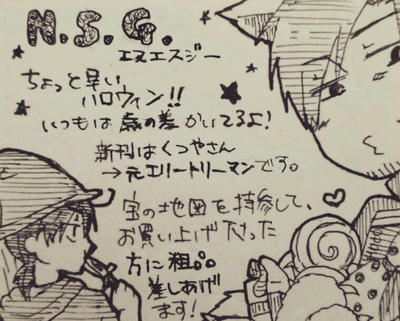 N.S.G.
エヌエスジー
ちょっと早い
ハロウィン!!
いつもは歳の差かいてるよ!
新刊はくつやさん
→元エリートリーマンです。
宝の地図を持参して、
お買い上げ下さった
方に粗品
差しあげ
ます!